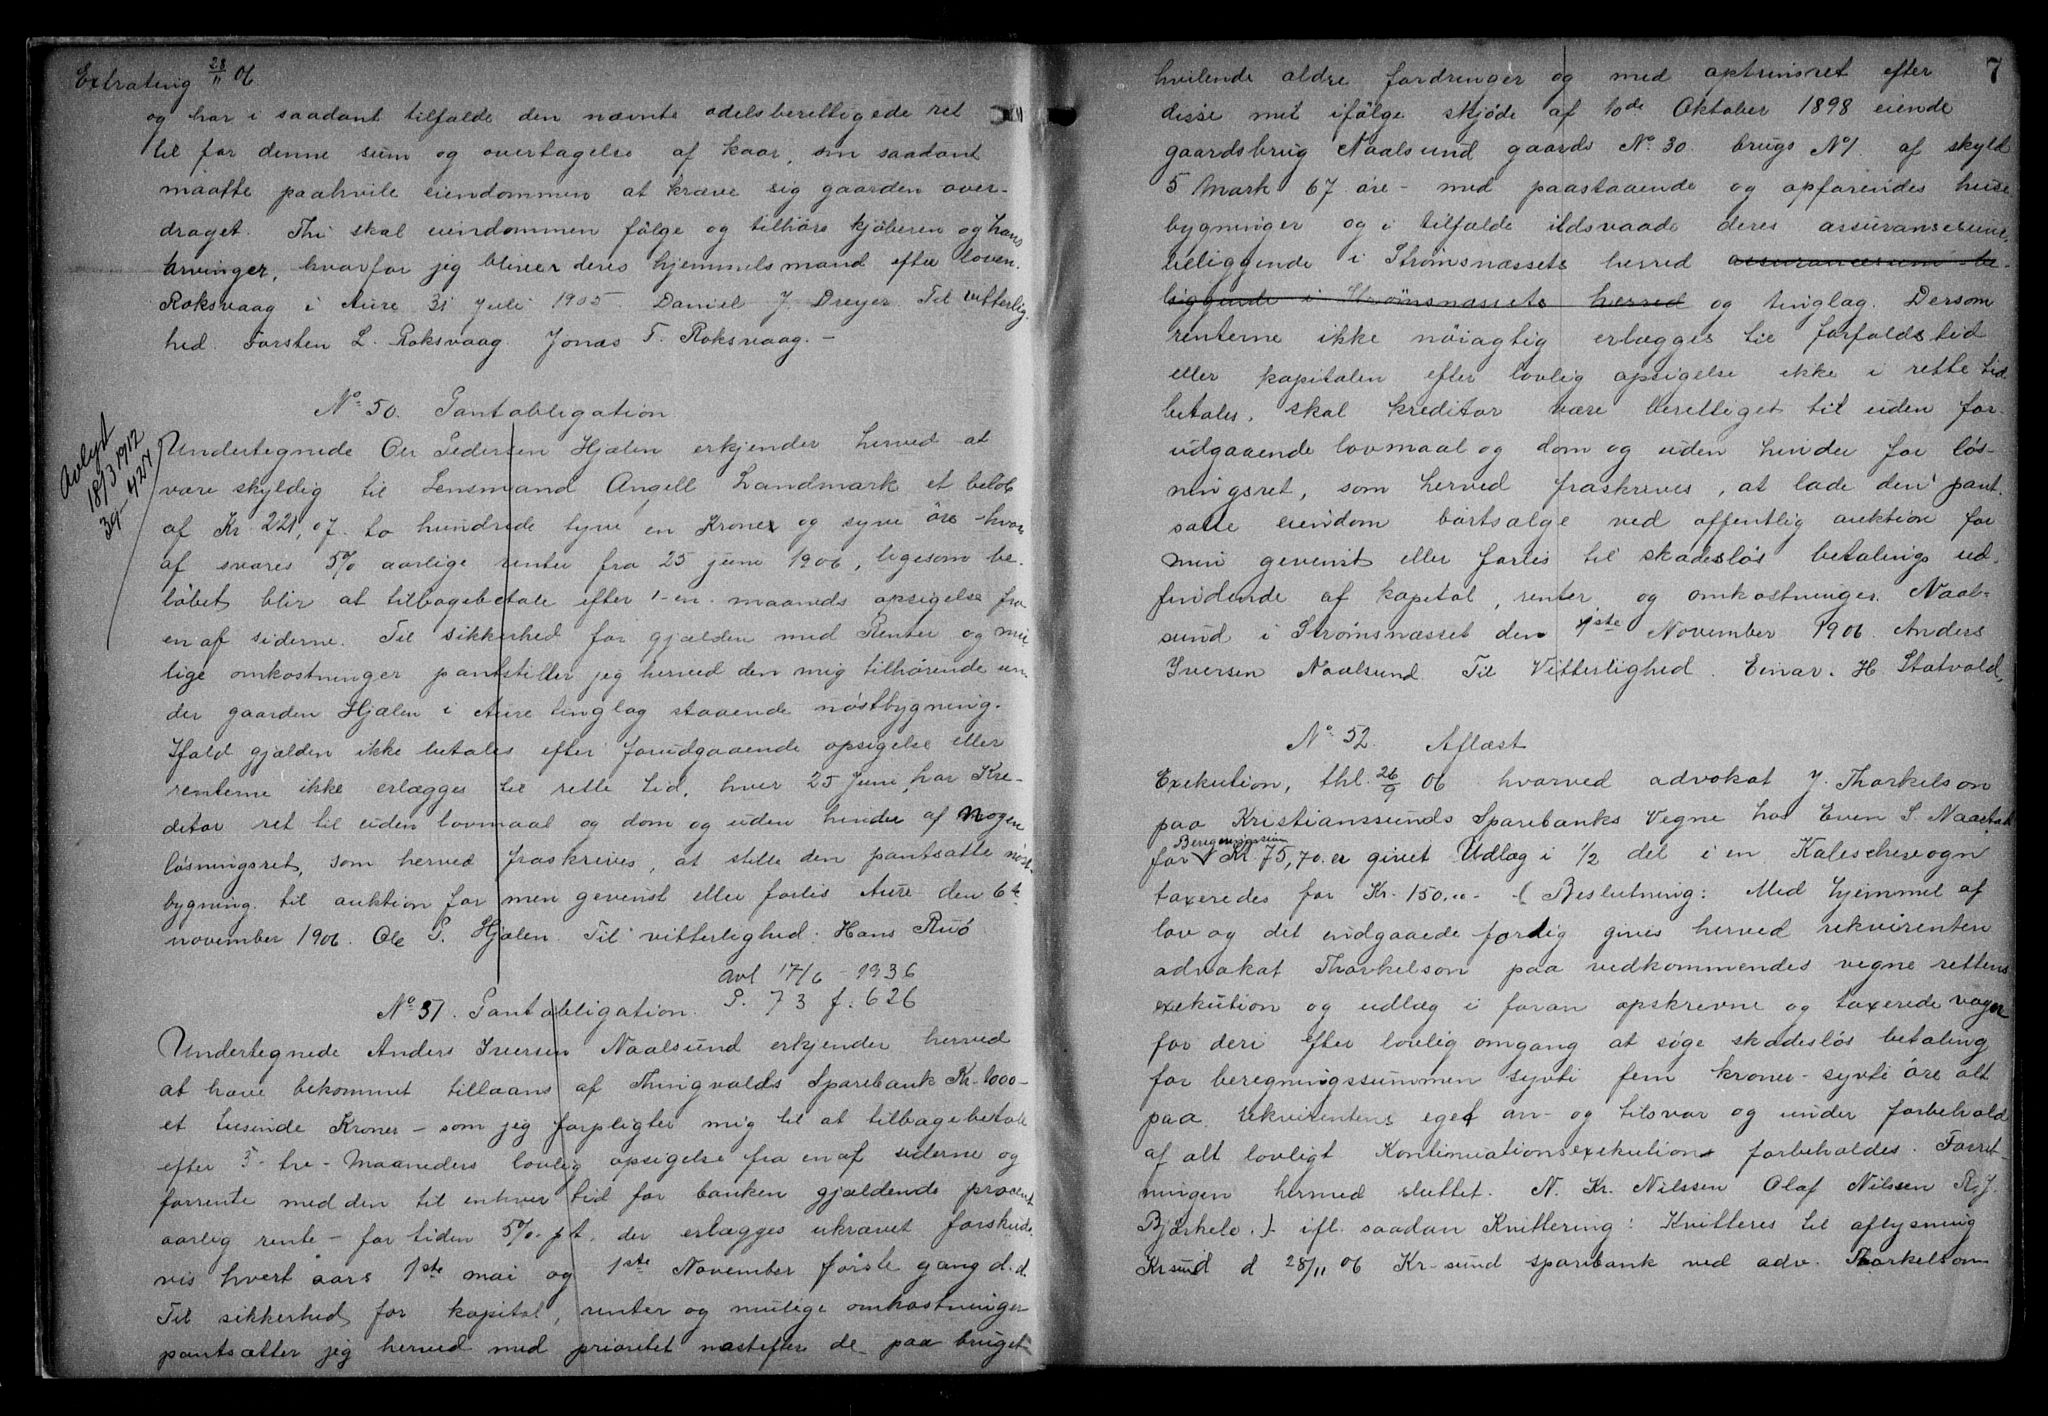 Extrating 28/11 06.
og har i saadant tilfælde den nævnte odelsberettigede ret
til for denne sum og overtagelse af kaar, som saadant
maatte paahvile eiendommen at kræve sig gaarden over-
draget. Thi skal eiendommen følge og tilhøre kjøberen og hans
arvinger, hvorfor jeg bliver deres hjemmelsmand efter loven.
Roksvaag i Aure 31 Juli 1905. Daniel J. Dreyer. Til vitterlig-
hed. Torsten L. Roksvaag. Jonas T. Roksvaag. -
No. 50. Pantobligation
Avlyst
18/3 1912
39-427
Undertegnede Ole Pedersen Hjælen erkjender herved at
være skyldig til Lensmand Angell Landmark et beløb
af Kr. 221,07. to hundrede tyve en Kroner og syve øre - hvor
af svares 5% aarlige renter fra 25 juni 1906, ligesom be-
løbet blir at tilbagebetale efter 1-en- maaneds opsigelse fra
en af siderne. Til sikkerhed for gjælden med Renter og mu-
lige omkostninger pantstiller jeg herved den mig tilhørende un-
der gaarden Hjælen i Aure tinglag staaende nøstbygning.
Ifald gjælden ikke betales efter forudgaaende opsigelse eller
renterne ikke erlægges til rette tid, hver 25 Juni, har Kre-
ditor ret til uden lovmaal og dom og uden hinder af nogen
løsningsret, som herved fraskrives, at stille den pantsatte nøst-
bygning til auktion for min gevinst eller forlis Aure den 6te
november 1906. Ole P. Hjælen. Til vitterlighed: Hans Ruø.
Avl 17/6 - 1936
P. 73 f. 626
No. 51. Pantobligation.
Undertegnede Anders Iversen Naalsund erkjender herved
at have bekommet tillaans af Thingvolds Sparebank Kr. 1000-
et tusinde Kroner - som jeg forpligter mig til at tilbagebetale
efter 3- tre- Maaneders lovlig opsigelse fra en af siderne og
forrente med den til enhver tid for banken gjældende procent
aarlig rente - for tiden 5% p.t. der erlægges ukrævet forskuds-
vis hvert aars 1ste mai og 1ste November første gang d.d.
Til sikkerhed for kapital, renter og mulige omkostninger
pantsætter jeg herved med prioritet næstefter de paa bruget
7
hvilende ældre fordringer og med optrinsret efter
disse mit ifølge skjøde af 10de Oktober 1898 eiende
gaardsbrug Naalsund gaards No. 30. brugs No 1. af skyld
5 Mark 67 øre - med paastaaende og opførendes huse
bygninger og i tilfælde ildsvaade deres assuransesum,
beliggende i Strømsnæssets herred assurancesum be-
liggende i Strømsnæssets herred og tinglag. Dersom
renterne ikke nøiagtig erlægges til forfaldstid
eller kapitalen efter lovlig opsigelse ikke i rette tid
betales, skal kreditor være berettiget til uden for-
udgaaende lovmaal og dom og uden hinder for løs-
ningsret, som herved fraskrives, at lade den pant-
satte eiendom bortsælge ved offentlig auktion for
min gevinst eller forlis til skadesløs betalings ud-
findende af kapital, renter og omkostninger. Naal-
sund i Strømsnæsset den 1ste November 1906. Anders
Iversen Naalsund. Til Vitterlighed. Einar. H. Statvold,
No. 52. Aflæst
Exekution, thl. 26/9 06 hvorved advokat J. Thorkelson
paa Kristianssunds Sparebanks Vegne hos Even S.
for Kr. 75,70. er givet Udlæg i 1/2 del i en Kaleschevogn
taxeredes for Kr. 150.00 - ( Beslutning: Med hjemmel af
lov og det indgaaede forlig gives herved rekvirenten
advokat Thorkelson paa vedkommendes vegne rettens
exekution og udlæg i foran opskrevne og taxerede vogn
for deri efter lovlig omgang at søge skadesløs betaling
for beregningssummen sytti fem kroner - sytti øre alt
paa rekvirentens eget an- og tilsvar og under forbehold
af alt lovligt Kontinuationsexekution forbeholdes. Forret-
ningen hermed sluttet. N. Kr. Nilssen Olaf Nilssen R. J.
Bjerkele.) ifl. saadan Knittering: Knitteres til aflysning
Kr.sund d 28/11 06 Kr-sund sparebank ved adv. Thorkelson